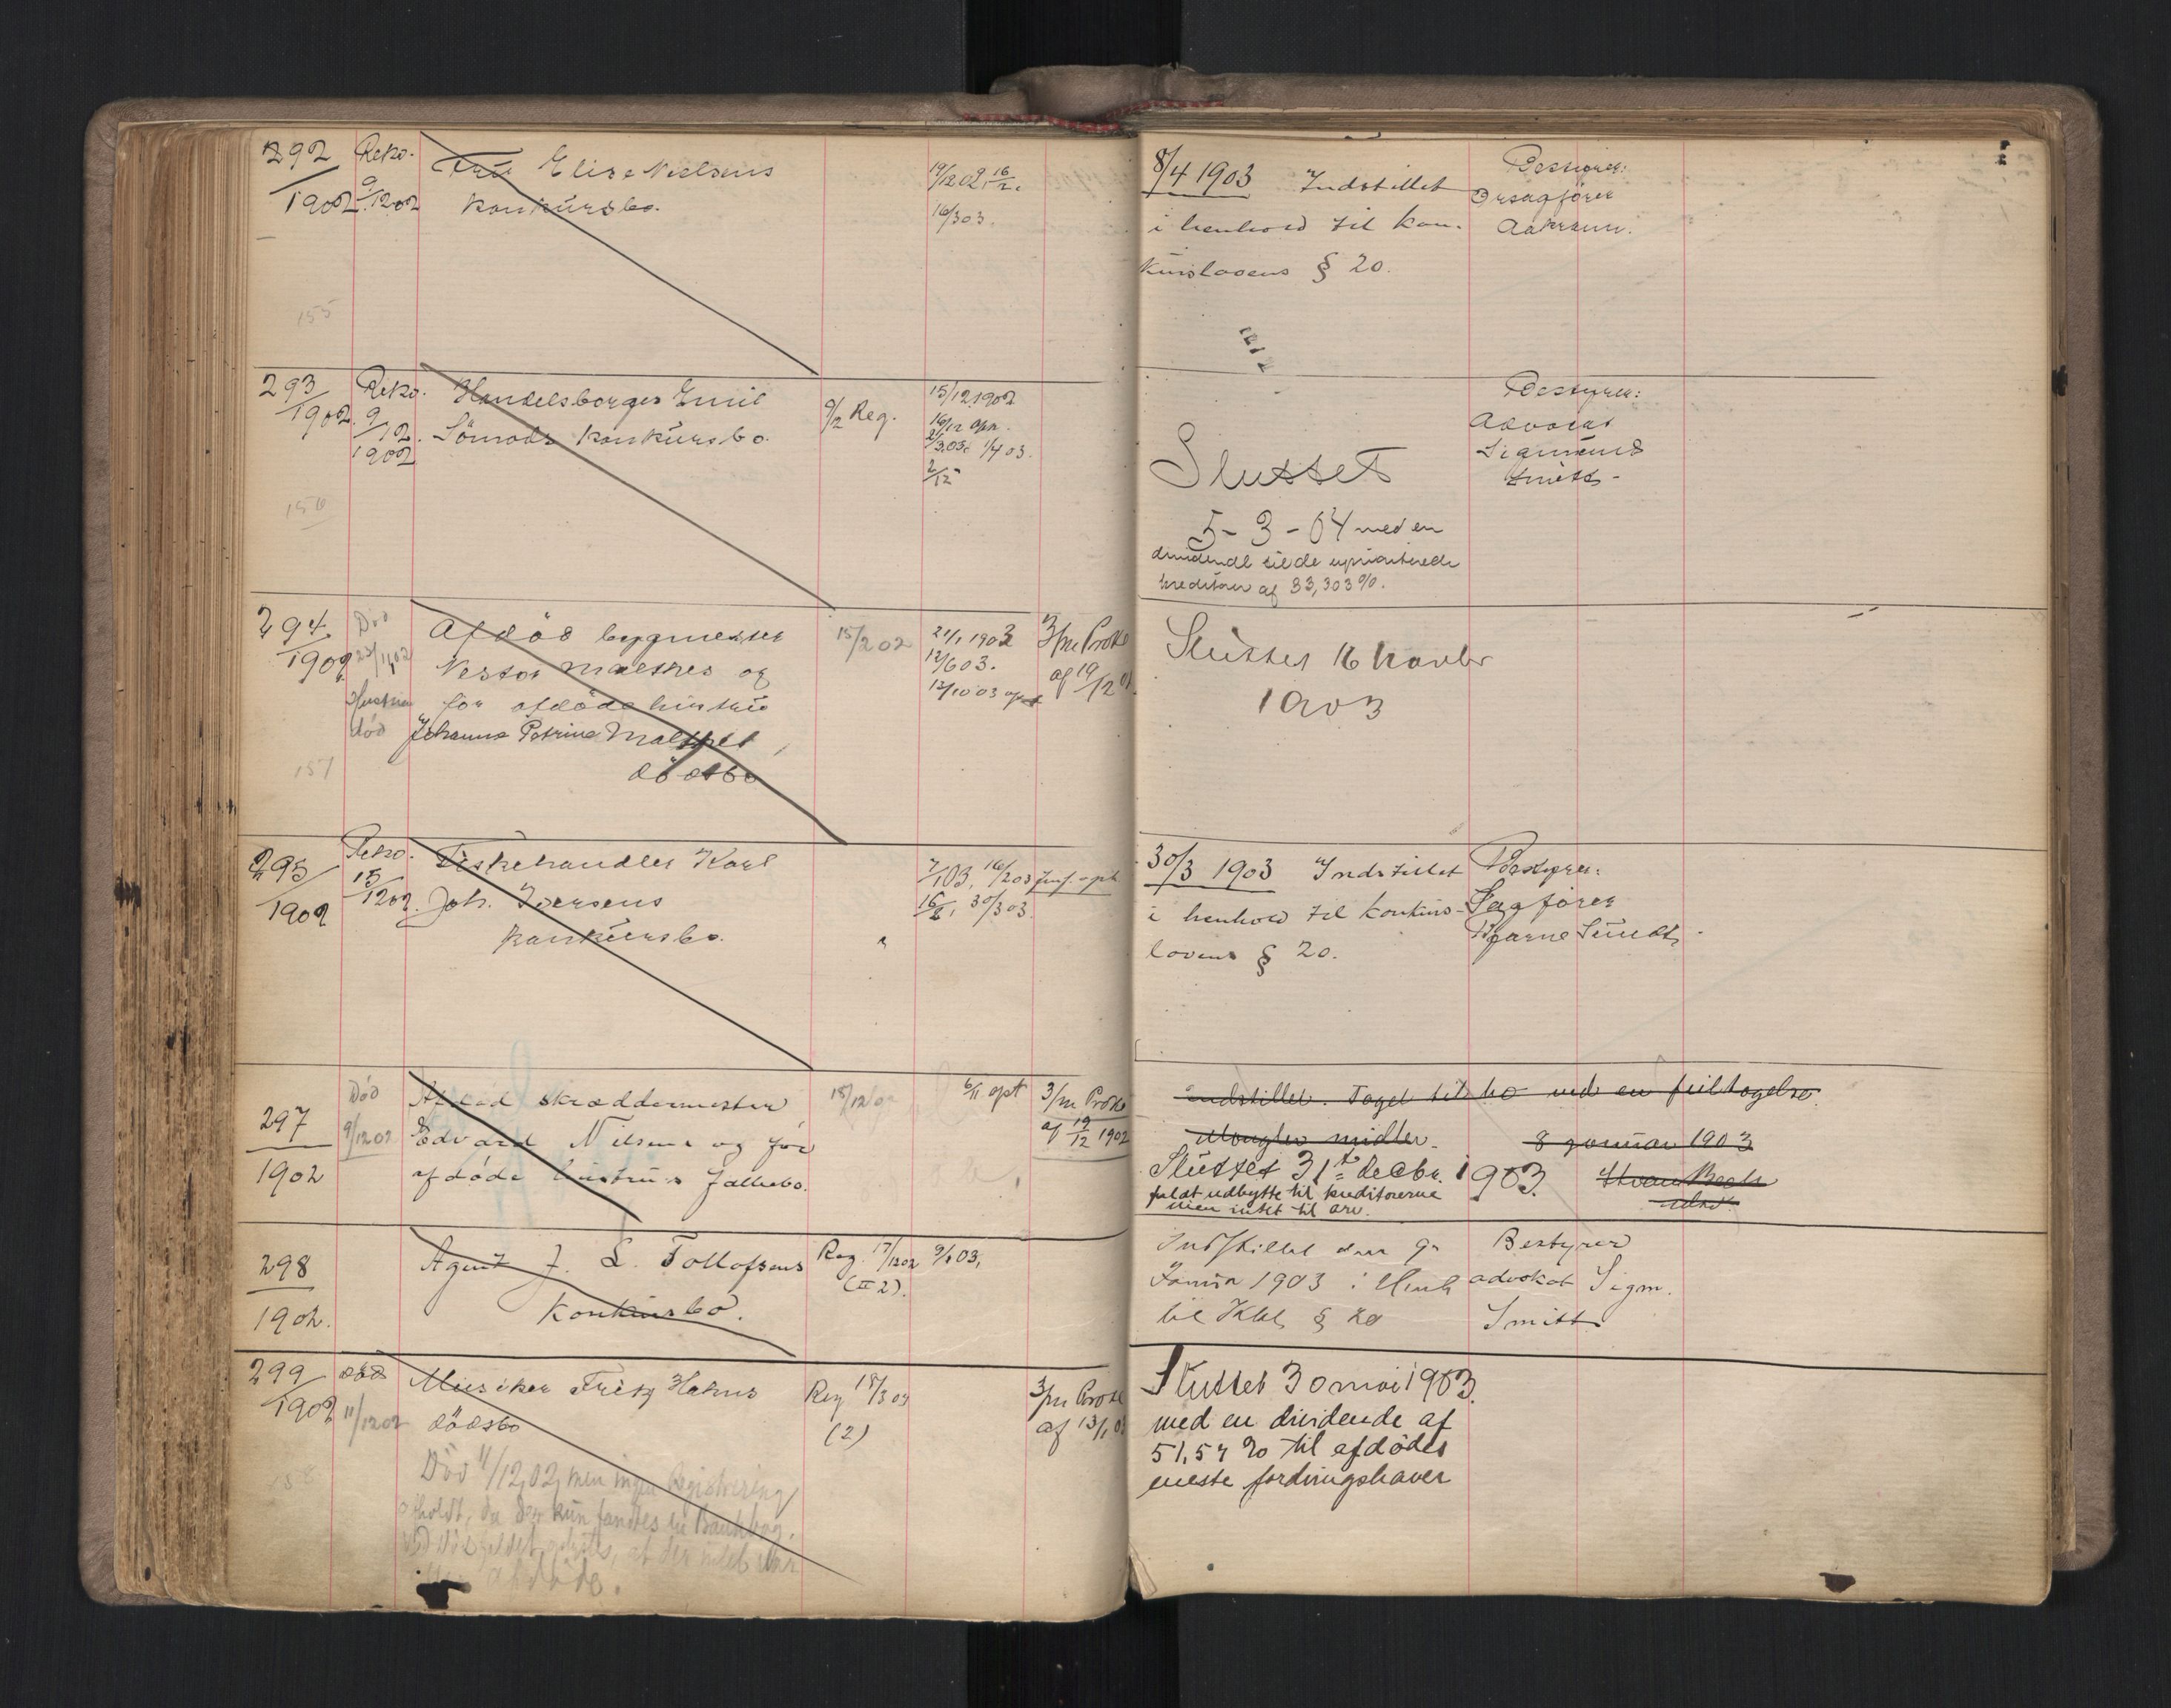 292 Reko. Frü Elise Nielsens
1902 9/12 02 konkürsbo.
19/12 02, 16/2.
16/3 03.
8/4 1903 Indstillet
i henhold til kon-
kürslovens § 20.
Bestyrer:
Orsagförer
155
293 Reko. Handelsborger Emil
1902 9/12 1902 konkürsbo.
9/2 Reg.
15/12 1902
16/12 opn.
1/4 03.
2/12
Sluttet
5-3-04 med en
dividende til de uprioriterede
kreditorer af 33,303 %.
Bestyrer:
Advokat
Sigmünd
Smitt
156
294 Död Afdöd bygmester
1902 23/11 02 Nestor Malthes og
Hustru for afdöde hüstrü
död Johanne Petrine
dödsbo
15/2 02
21/1 1903
12/6 03.
12/10 03
3/m Prokl
af 19/12 02
Slüttet 16 Novbr
1903
157
295 Reko. Fiskehandler Karl
1902 15/12 02. Joh. Iversens
konkürsbo.
7/1 03, 16/2 03
16/2, 30/3 03.
30/3 1903 Indstillet
i henhold til konkürs-
lovens § 20.
Bestyrer:
Sagförer
Bjarne Sündt
297 Död Afdöd skræddermester
1902 9/12 02 Edvard Nilsens og för
afdöde hüstrü's fællesbo.
18/12 02
6/11 opt
3/m Prokl
af 19/12 1902
Indstillet. Taget til bo ved en feiltagelse.
Mangler midler.
8 januar 1903
Slüttet 31te decbr. 1903.
fuldt udbytte til kreditorerne
men intet til arv.
298 Agent J. L. Tollofsens
1902. Konkürsbo.
Reg. 17/12 02
(II 2).
9/1 03,
Indstillet den 9de
Januar 1903 i Henh
til Kkl. § 20
Bestyrer
advokat Sigm.
Smitt
299 död Müsiker Fritz Hahns
1902 11/12 02 dödsbo
Reg 18/3 03
(2)
3/m Prokl
af 13/1 03
Död 11/12,02, men ingen Registrering
afholdt, da der kün fandtes en Bankbog.
Sluttet 30 mai 1903.
med en dividende af
51,54 % til afdödes
eneste fordringshaver